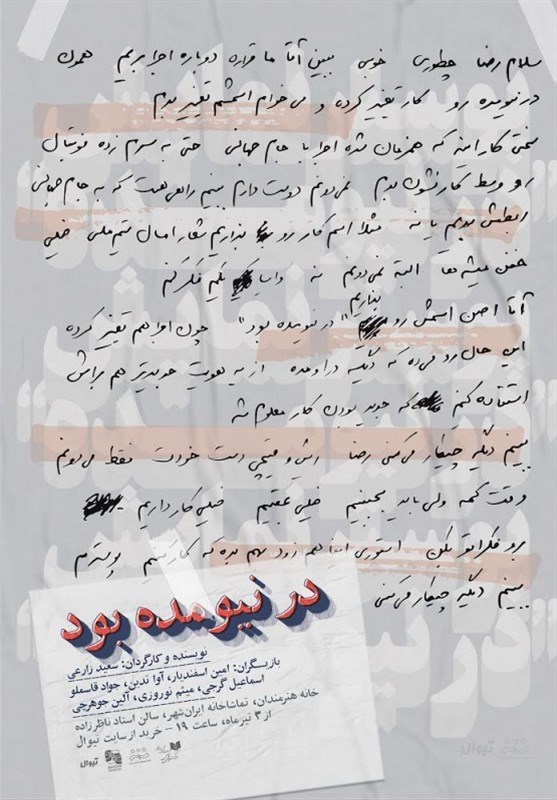 سلام رضا چطوری خوبی ببین آقا ما قراره دوباره اجرا بریم همون
در نیومده رو کار تغییر کرده و می‌خوام اسمشم تغییر بدم
سختی کار اینه که همزمان شده اجرا با جام جهانی حتی به سرم زده فوتبال
رو وسط کار نشون بدم نمی‌دونم دوست دارم ببینم راهی هست که به جام جهانی
ربطش بدیم یا نه مثلا اسم کار رو بذاریم شعار امسال تیم ملی خیلی
خفن میشه‌ها البته نمی‌دونم نه وایسا یکم فکر کنم
آقا اصن اسمش رو بذاریم "در نیومده بود" چون اجرا هم تغییر کرده
این حال رو می‌ده که دیگه دراومده از یه هویت جدیدتر هم براش
استفاده کنیم که جدید بودن کار معلوم شه
ببینم دیگه چیکار می‌کنی رضا ریش و قیچی دست خودت فقط می‌دونم
وقت کمه ولی باید بجنبیم خیلی عقبیم خیلی کار داریم
برو فکراتو بکن استوری اینا هم زود بهم بده که کار کنیم پوسترم
ببینم دیگه چیکار می‌کنی
در نیومده بود
نویسنده و کارگردان: سعید زارعی
بازیگران: امین اسفندیار، آوا تدین، جواد قاسملو
اسماعیل گرجی، میثم نوروزی، آلین جوهرچی
خانه هنرمندان، تماشاخانه ایران‌شهر، سالن استاد ناظرزاده
از ۳ تیرماه، ساعت ۱۹ - خرید از سایت تیوال
تیوال
تیوال